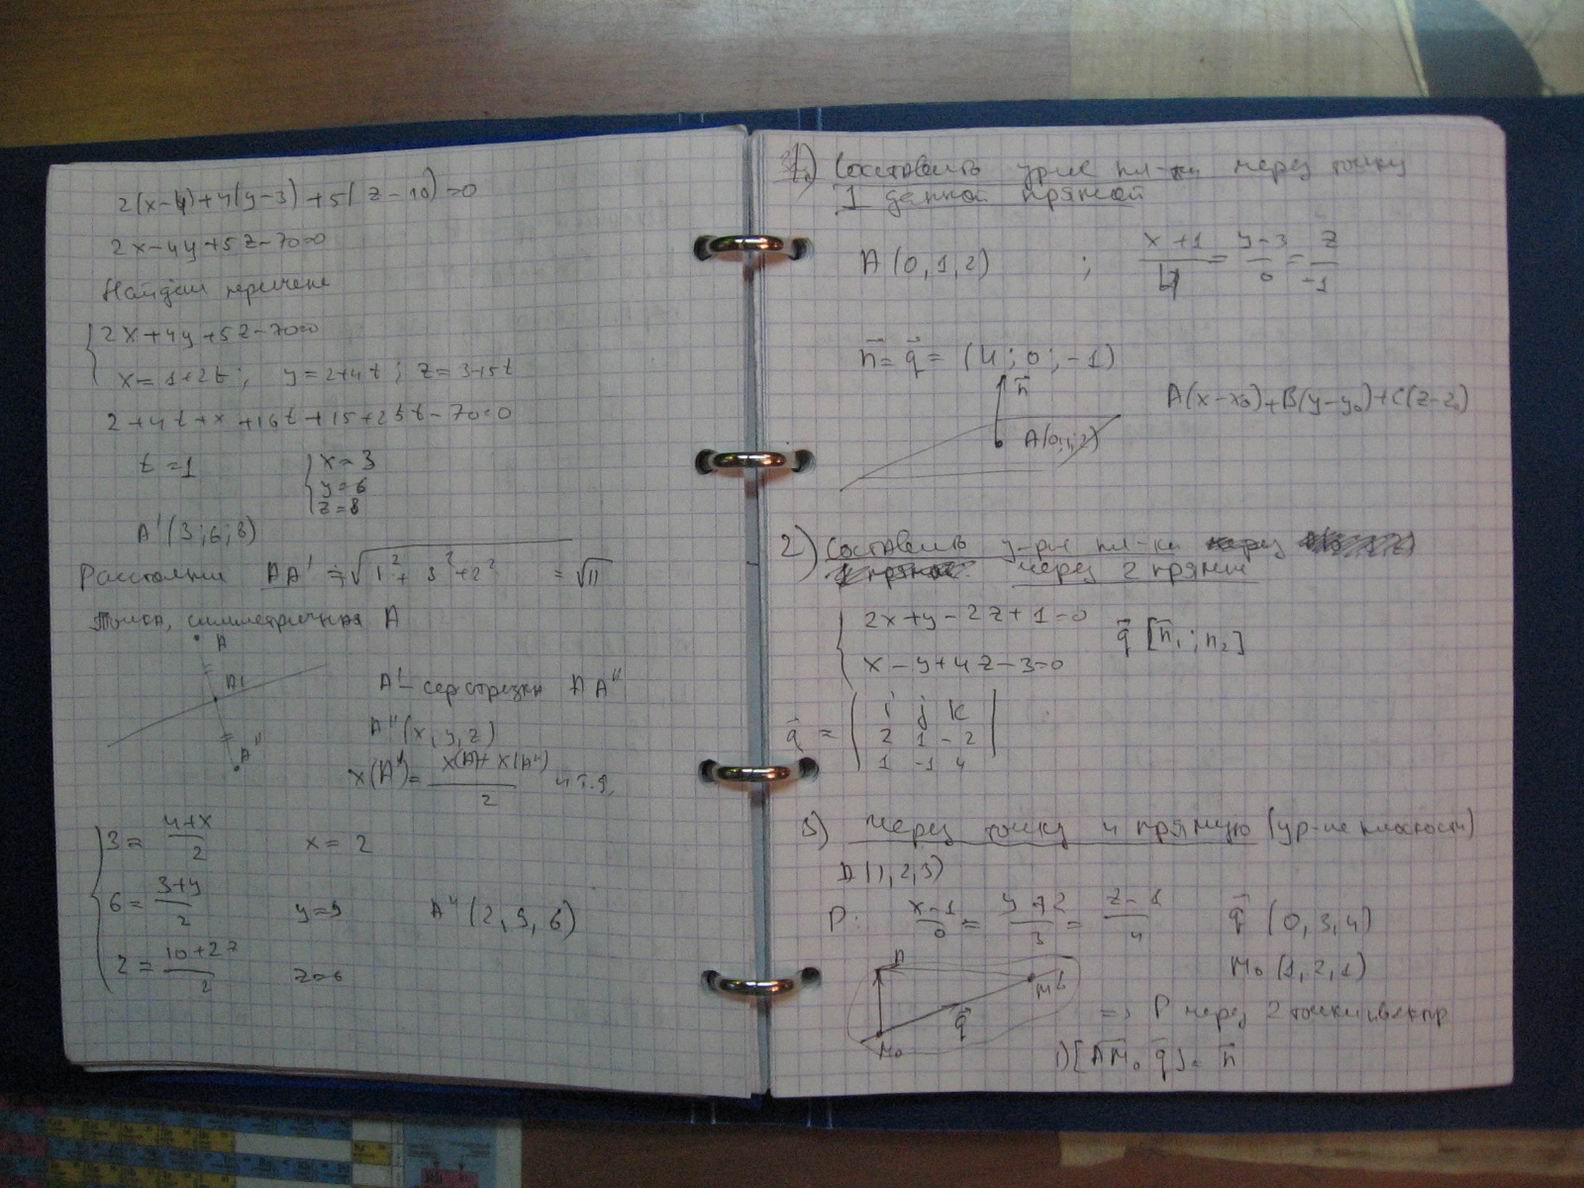 2(x-4)+4(y-3)+5(z-10)=0
2x-4y+5z-70=0
Найдём пересече
2x+4y+5z-70=0
x=1+2t; y=2+4t; z=3+5t
2+4t+x+16t+15+25t-70=0
t=1
x=3
y=6
z=8
A'(3;6;8)
Расстояния AA' = √1²+3²+2² = √11
Точка, симметричная A
A
A'
A"
A'- сер отрезка AA"
A"(x,y,z)
x(A')= x(A)+x(A") / 2 и т.д.
3= 4+x / 2 x=2
6= 3+y / 2 y=9 A"(2,9,6)
2= 10+2z / 2 z=6
1) Составить ур-ие пл-ти через точку
⊥ данной прямой
A(0,1,2) ; x+1 / 4 = y-3 / 0 = z / -1
n̄= q̄ = (4;0;-1)
n̄
A(0,1,2)
A(x-x₀)+B(y-y₀)+C(z-z₀)
2) Составить у-рие пл-ти
через 2 прямые
2x+y-2z+1=0
x-y+4z-3=0
q̄ [n̄₁; n₂]
q̄ = | i j k |
2 1 -2
1 -1 4
3) через точку и прямую (ур-ие плоскости)
A(1,2,3)
P: x-1 / 0 = y+2 / 3 = z-1 / 4 q̄ (0,3,4)
M₀(1,2,1)
A
M
q̄
M₀
=> P через 2 точки и вектор
1) [AM₀ q̄] = n̄